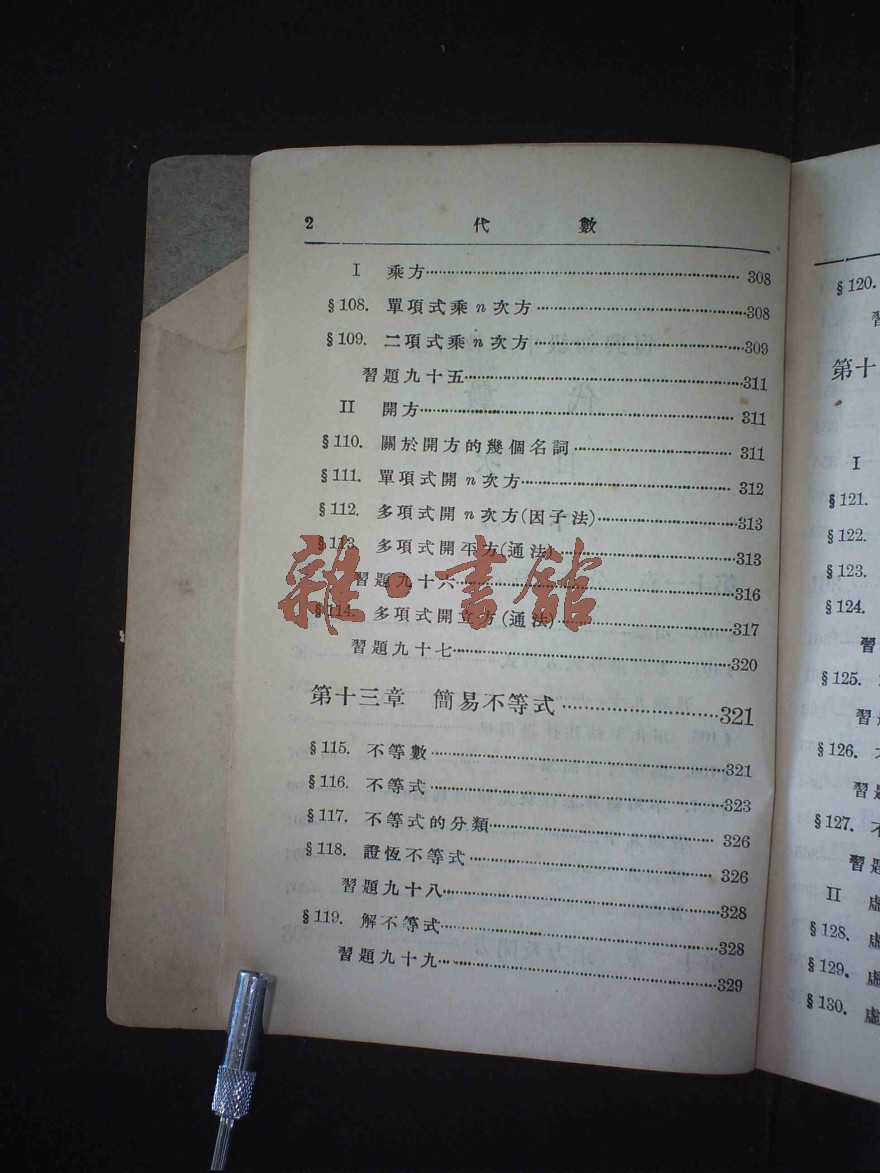 2 代數
I 乘方 308
§108. 單項式乘n次方 308
§109. 二項式乘n次方 309
習題九十五 311
II 開方 311
§110. 關於開方的幾個名詞 311
§111. 單項式開n次方 312
§112. 多項式開n次方(因子法) 313
§113. 多項式開平方(通法) 313
習題九十六 316
§114. 多項式開立方(通法) 317
習題九十七 320
第十三章 簡易不等式 321
§115. 不等數 321
§116. 不等式 323
§117. 不等式的分類 326
§118. 證恆不等式 326
習題九十八 328
§119. 解不等式 328
習題九十九 329
雜·書館
§120.
第十
I
§121.
§122.
§123.
§124.
習
§125.
習
§126.
習題
§127.
習題
II 虛
§128. 虛
§129. 虛
§130. 虛